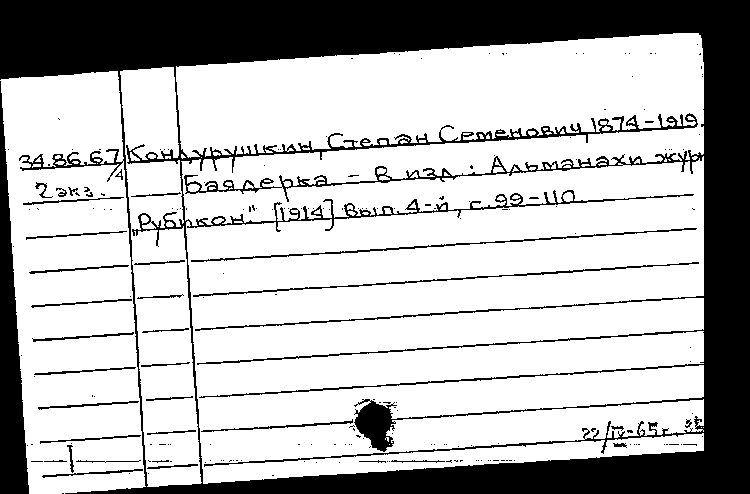 34.86.6.7/4 Кондурушкин, Степан Семенович, 1874-1919.
2 экз. Баядерка - В изд.: Альманахи жур
„Рубикон". [1914] Вып. 4-й, с. 99-110.
22/IV-65г.
I